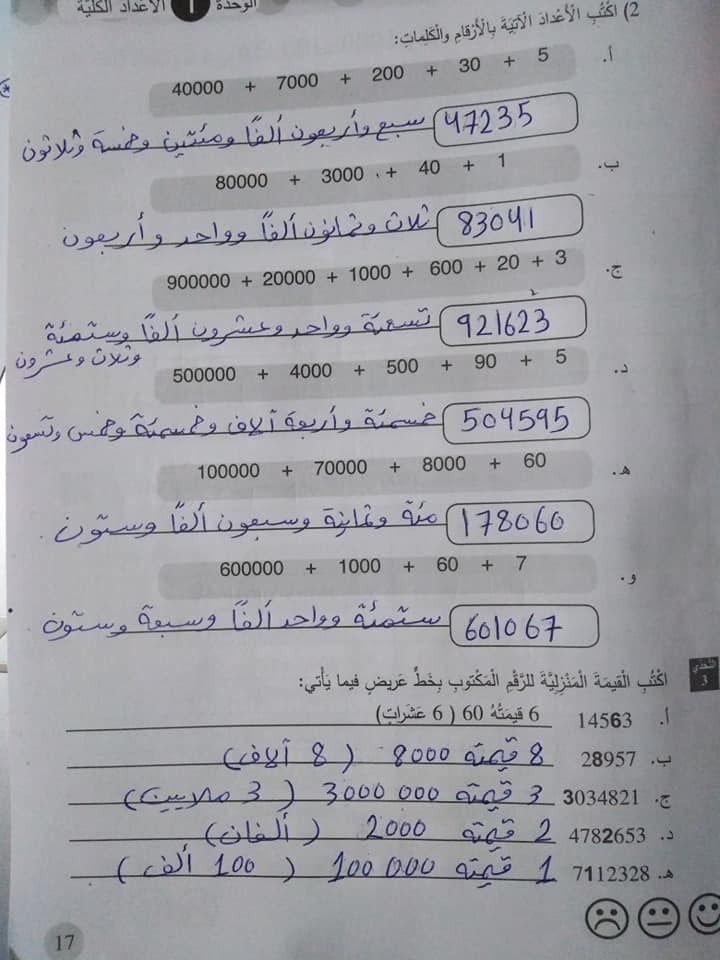 الوحدة 1 الأعداد الكلية
2) اكْتُبِ الْأَعْدادَ الْآتِيَةَ بِالْأَرْقامِ والْكَلِماتِ:
أ. 40000 + 7000 + 200 + 30 + 5
47235 سبع وأربعون ألفًا ومئتين وخمسة وثلاثون
ب. 80000 + 3000 + 40 + 1
83041 ثلاث وثمانون ألفاً وواحد وأربعون
ج. 900000 + 20000 + 1000 + 600 + 20 + 3
921623 تسعمئة وواحد وعشرون ألفاً وستمئة
وثلاث وعشرون
د. 500000 + 4000 + 500 + 90 + 5
504595 خمسمئة وأربعة آلاف وخمسمئة وخمس وتسعون
هـ. 100000 + 70000 + 8000 + 60
178060 مئة وثمانية وسبعون ألفاً وستون
و. 600000 + 1000 + 60 + 7
601067 ستمئة وواحد ألفاً وسبعة وستون
التَّحَدّي 3 اكْتُبِ الْقيمَةَ الْمَنْزِلِيَّةَ للرَّقْمِ الْمَكْتوبِ بِخَطٍّ عَريضٍ فيما يَأْتي:
أ. 14563 6 قيمَتُهُ 60 ( 6 عَشَراتٍ)
ب. 28957 8 قيمته 8000 ( 8 آلاف)
ج. 3034821 3 قيمته 3000 000 ( 3 ملايين)
د. 4782653 2 قيمته 2000 ( ألفان)
هـ. 7112328 1 قيمته 100 000 ( 100 ألف )
17